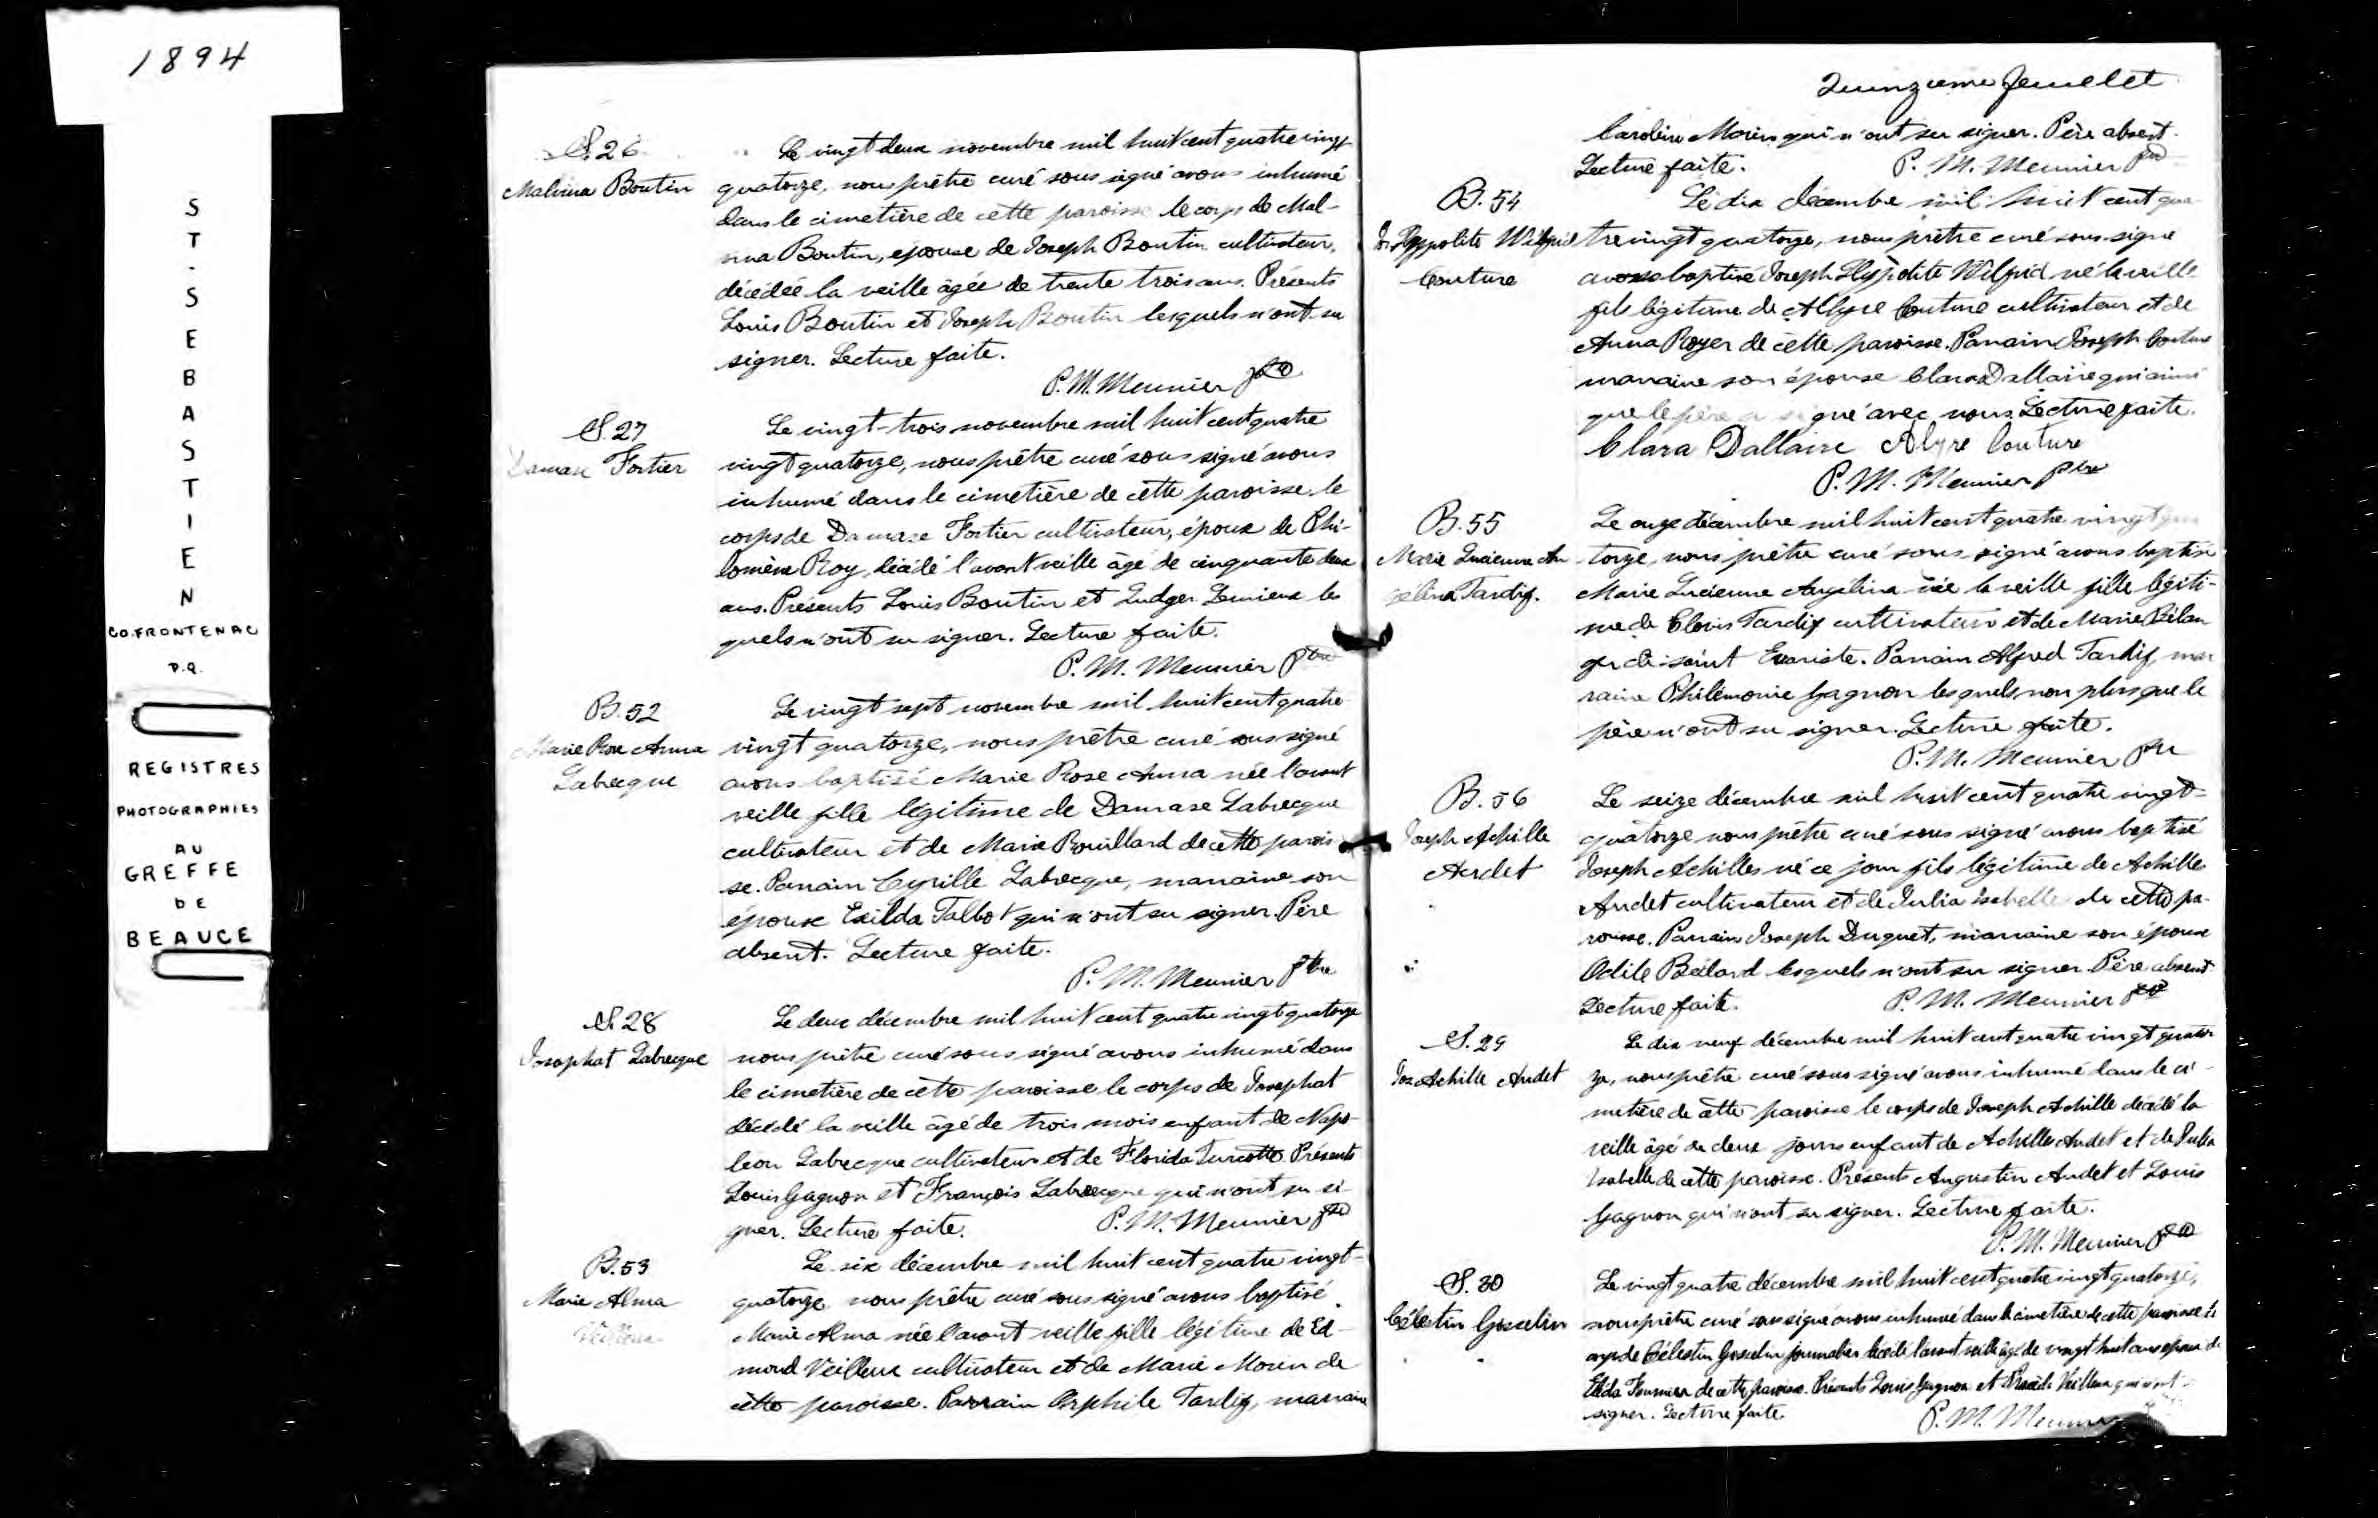 1894
ST-SEBASTIEN
CO. FRONTENAC
P.Q.
REGISTRES
PHOTOGRAPHIES
AU
GREFFE
DE
BEAUCE
S. 26
Malvina Boutin
Le vingt deux novembre mil huit cent quatre vingt
quatorze, nous prêtre curé sous signé avons inhumé
dans le cimetière de cette paroisse le corps de Mal-
vina Boutin, épouse de Joseph Boutin cultivateur,
décédée la veille âgée de trente trois ans. Présents
Louis Boutin et Joseph Boutin lesquels n'ont su
signer. Lecture faite.
P. M. Meunier ptre
S. 27
Damase Fortier
Le vingt-trois novembre mil huit cent quatre
vingt quatorze, nous prêtre curé sous signé avons
inhumé dans le cimetière de cette paroisse le
corps de Damase Fortier cultivateur, époux de Phi-
lomène Roy, décédé l'avant veille âgé de cinquante deux
ans. Présents Louis Boutin et Ludger Lemieux les
quels n'ont su signer. Lecture faite.
P. M. Meunier ptre
B. 52
Marie Rose Anna
Labrecque
Le vingt sept novembre mil huit cent quatre
vingt quatorze, nous prêtre curé sous signé
avons baptisé Marie Rose Anna née l'avant
veille fille légitime de Damase Labrecque
cultivateur et de Marie Rouillard de cette parois-
se. Parrain Cyrille Labrecque, marraine son
épouse Exilda Talbot qui n'ont su signer. Père
absent. Lecture faite.
P. M. Meunier ptre
S. 28
Josaphat Labrecque
Le deux décembre mil huit cent quatre vingt quatorze
nous prêtre curé sous signé avons inhumé dans
le cimetière de cette paroisse le corps de Josaphat
décédé la veille âgé de trois mois enfant de Napo-
léon Labrecque cultivateur et de Florida Turcotte. Présents
Louis Gagnon et François Labrecque qui n'ont su si-
gner. Lecture faite. P. M. Meunier ptre
B. 53
Marie Alma
Veilleux
Le six décembre mil huit cent quatre vingt-
quatorze nous prêtre curé sous signé avons baptisé
Marie Alma née l'avant veille fille légitime de Ed-
mond Veilleux cultivateur et de Marie Morin de
cette paroisse. Parrain Orphile Tardif, marraine
Quinzieme feuellet
Caroline Morin qui n'ont su signer. Père absent.
Lecture faite. P. M. Meunier ptre
B. 54
Js Hyppolite Wilfrid
Couture
Le dix décembre mil huit cent qua-
tre vingt quatorze, nous prêtre curé sous-signé
avons baptisé Joseph Hyppolite Wilfrid né la veille
fils légitime de Alyre Couture cultivateur et de
Anna Royer de cette paroisse. Parrain Joseph Couture
marraine son épouse Clara Dallaire qui ainsi
que le père a signé avec nous. Lecture faite.
Clara Dallaire Alyre Couture
P. M. Meunier ptre
B. 55
Marie Lucienne An
gélina Tardif.
Le onze décembre mil huit cent quatre vingt qua
torze, nous prêtre curé sous signé avons baptisé
Marie Lucienne Angélina née la veille fille légiti-
me de Clovis Tardif cultivateur et de Marie Bélan
ger de saint Evariste. Parrain Alfred Tardif, mar
raine Philémonie Gagnon lesquels non plus que le
père n'ont su signer. Lecture faite.
P. M. Meunier ptre
B. 56
Joseph Achille
Audet
Le seize décembre mil huit cent quatre vingt-
quatorze nous prêtre curé sous signé avons baptisé
Joseph Achille né ce jour fils légitime de Achille
Audet cultivateur et de Julia Isabelle de cette pa-
roisse. Parrain Joseph Duquet, marraine son épouse
Odile Bailard lesquels n'ont su signer. Père absent
Lecture faite. P. M. Meunier ptre
S. 29
Jos Achille Audet
Le dix neuf décembre mil huit cent quatre vingt quator
ze, nous prêtre curé sous signé avons inhumé dans le ci-
metière de cette paroisse le corps de Joseph Achille décédé la
veille âgé de deux jours enfant de Achille Audet et de Julia
Isabelle de cette paroisse. Présents Augustin Audet et Louis
Gagnon qui n'ont su signer. Lecture faite.
P. M. Meunier ptre
S. 30
Célestin Gosselin
Le vingt quatre décembre mil huit cent quatre vingt quatorze,
nous prêtre curé sous signé avons inhumé dans le cimetière de cette paroisse le
corps de Célestin Gosselin journalier décédé l'avant veille âgé de vingt huit ans époux de
Exilda Fournier de cette paroisse. Présents Louis Gagnon et Veilleux qui n'ont
signer. Lecture faite. P. M. Meunier